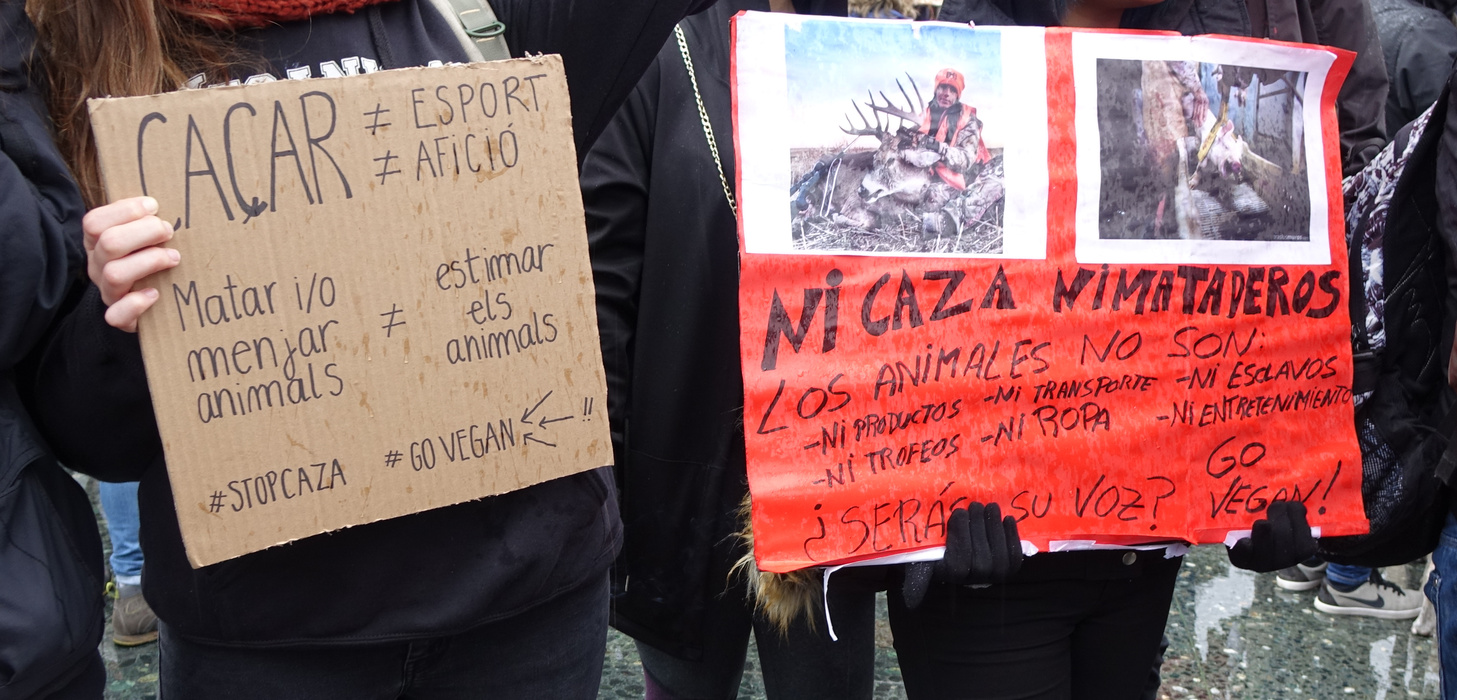 CAÇAR ≠ ESPORT
≠ AFICIÓ
Matar i/o
menjar
animals
≠
estimar
els
animals
#STOPCAZA
#GO VEGAN !!
NI CAZA NI MATADEROS
LOS ANIMALES NO SON:
-NI PRODUCTOS -NI TRANSPORTE -NI ESCLAVOS
-NI TROFEOS -NI ROPA -NI ENTRETENIMIENTO
¿SERÁS SU VOZ?
GO
VEGAN!